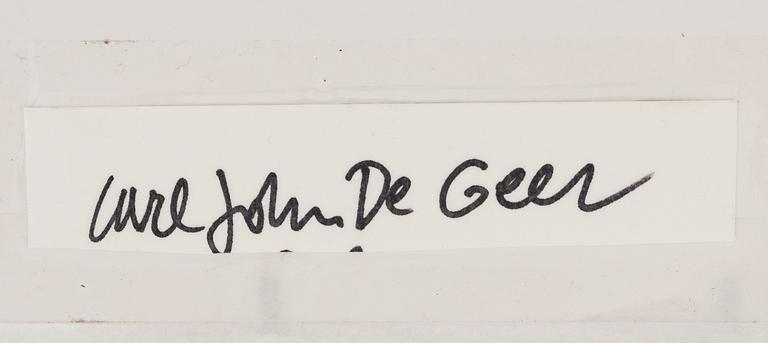 Carl Johan De Geer